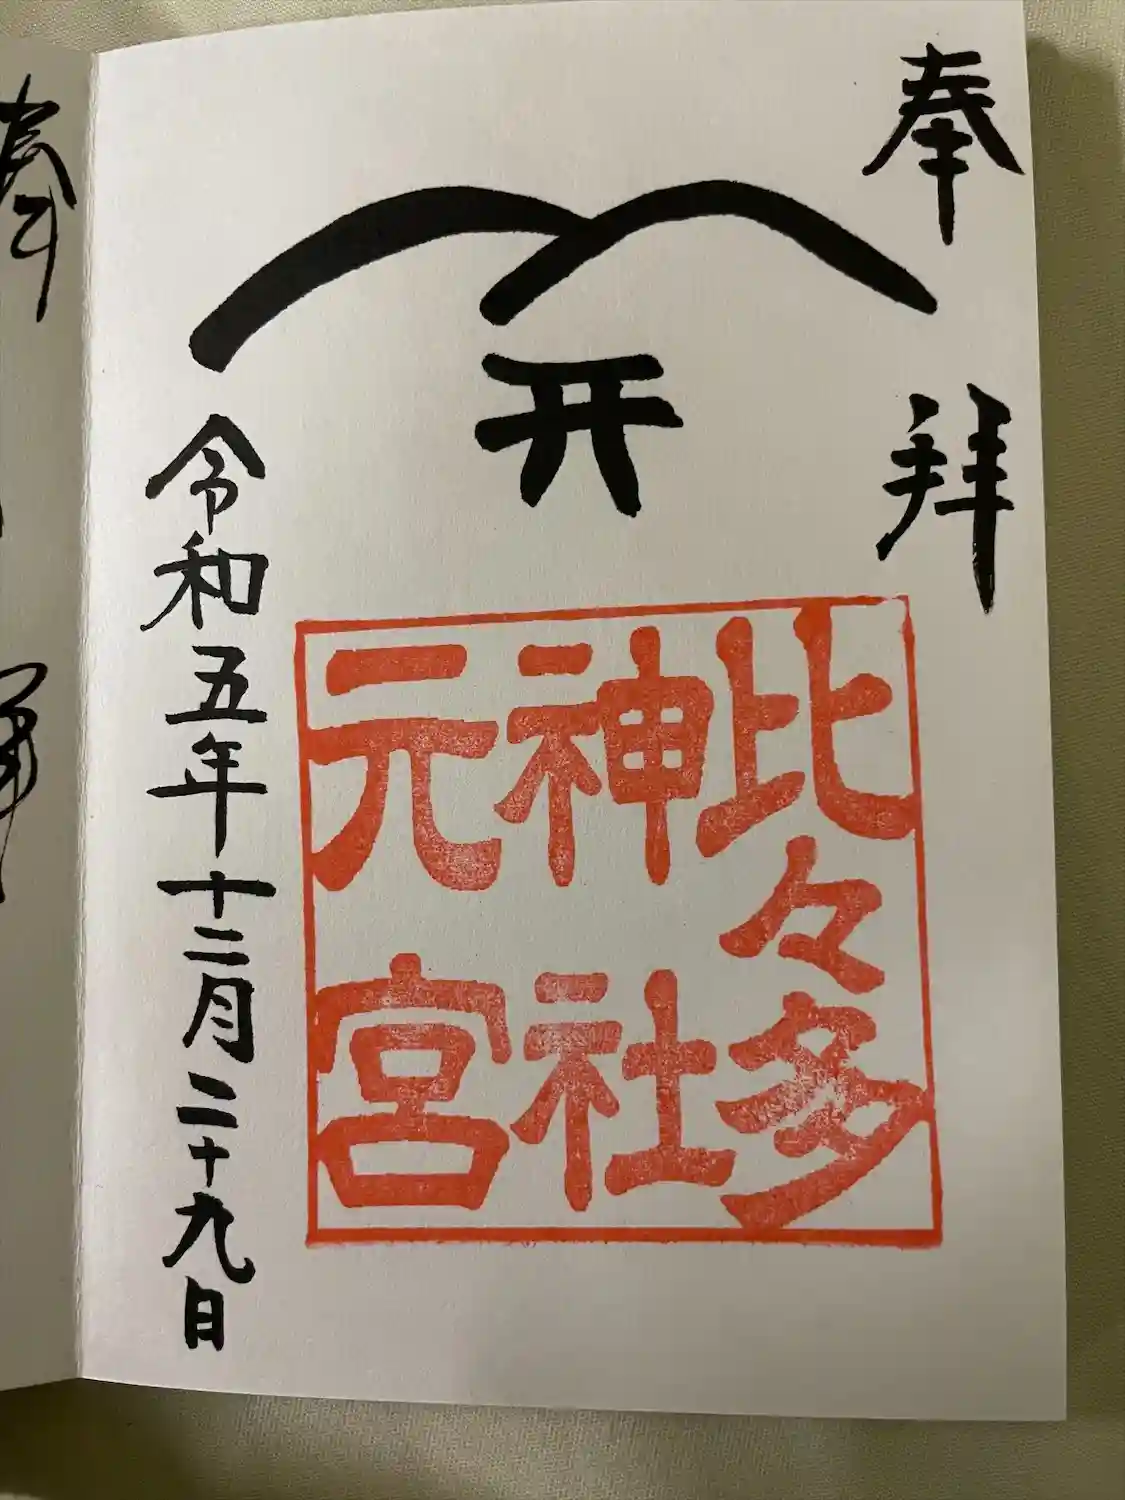 奉拝
開
比々多
神社
元宮
令和五年十二月二十九日
奉
拝